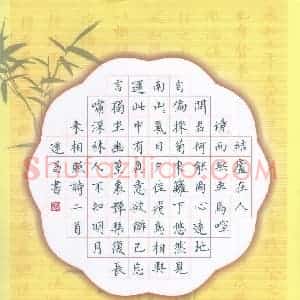 結廬在人
境而無車馬喧
問君何能爾心遠地
自偏採菊東籬下悠然見
南山氣日夕佳飛鳥相與
還此中有真意欲辨已忘
言獨坐幽篁裏彈琴復長
嘯深林人不知明月
來相照詩二首
書
Shufaziliao.com